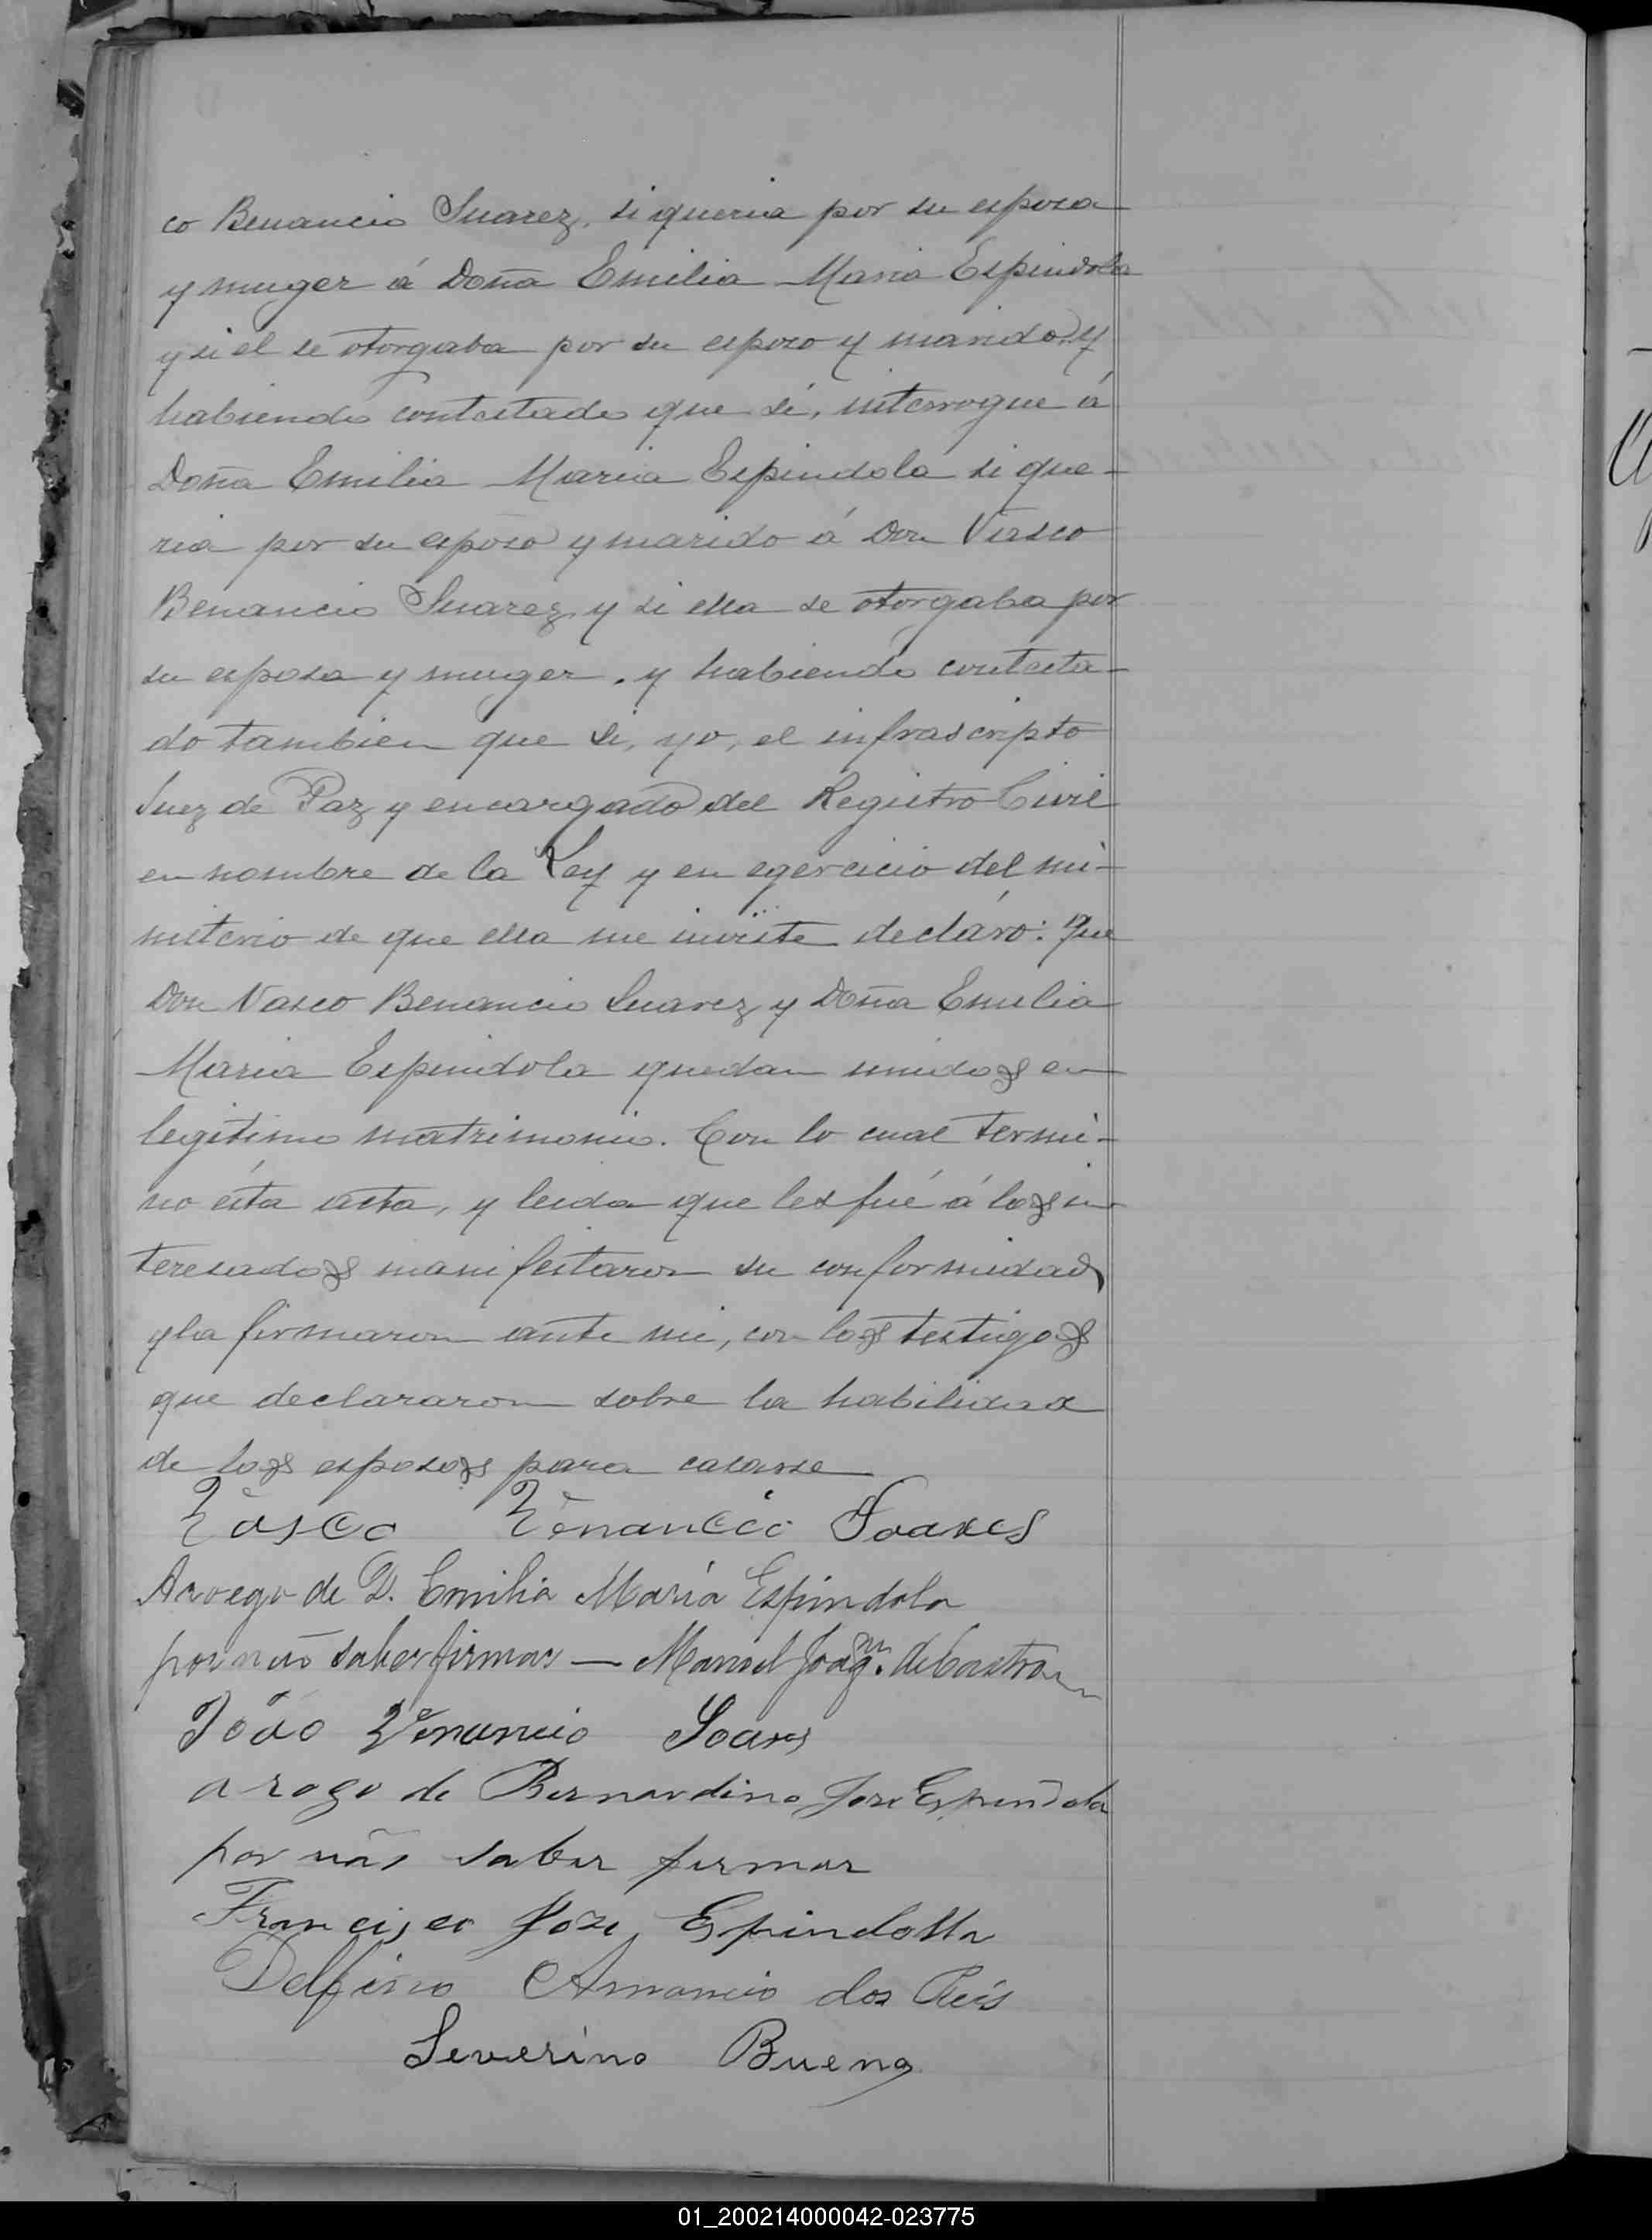 co Benancio Suarez, si queria por su esposa
y muger á Doña Emilia Maria Espindola
y si el se otorgaba por su esposo y marido, y
habiendo contestado que sí, interrogue á
Doña Emilia Maria Espindola si que-
ria por su esposo y marido á Don Vasco
Benancio Suarez, y si ella se otorgaba por
su esposa y muger, y habiendo contesta-
do tambien que si, yo, el infrascripto
Juez de Paz y encargado del Registro Civil
en nombre de la Ley y en egercicio del mi-
nisterio de que ella me inviste decláro: Que
Don Vasco Benancio Suarez y Doña Emilia
Maria Espindola quedan unidos en
legitimo matrimonio. Con lo cual termi-
no ésta acta, y leida que les fué á los in
teresados manifestaron su conformidad
y la firmaron ante mi, con los testigos
que declararon sobre la habilidad
de los esposos para casarse
Vasco Venancio Soares
Arroego de D. Emilia María Espindola
por não saber firmar — Manoel Joaqm. de Castro
João Venancio Soares
a rogo de Bernardino Jose Espindola
por não saber firmar
Francisco Joze Espindolla
Delfino Amancio dos Reis
Severino Bueno
01_200214000042-023775